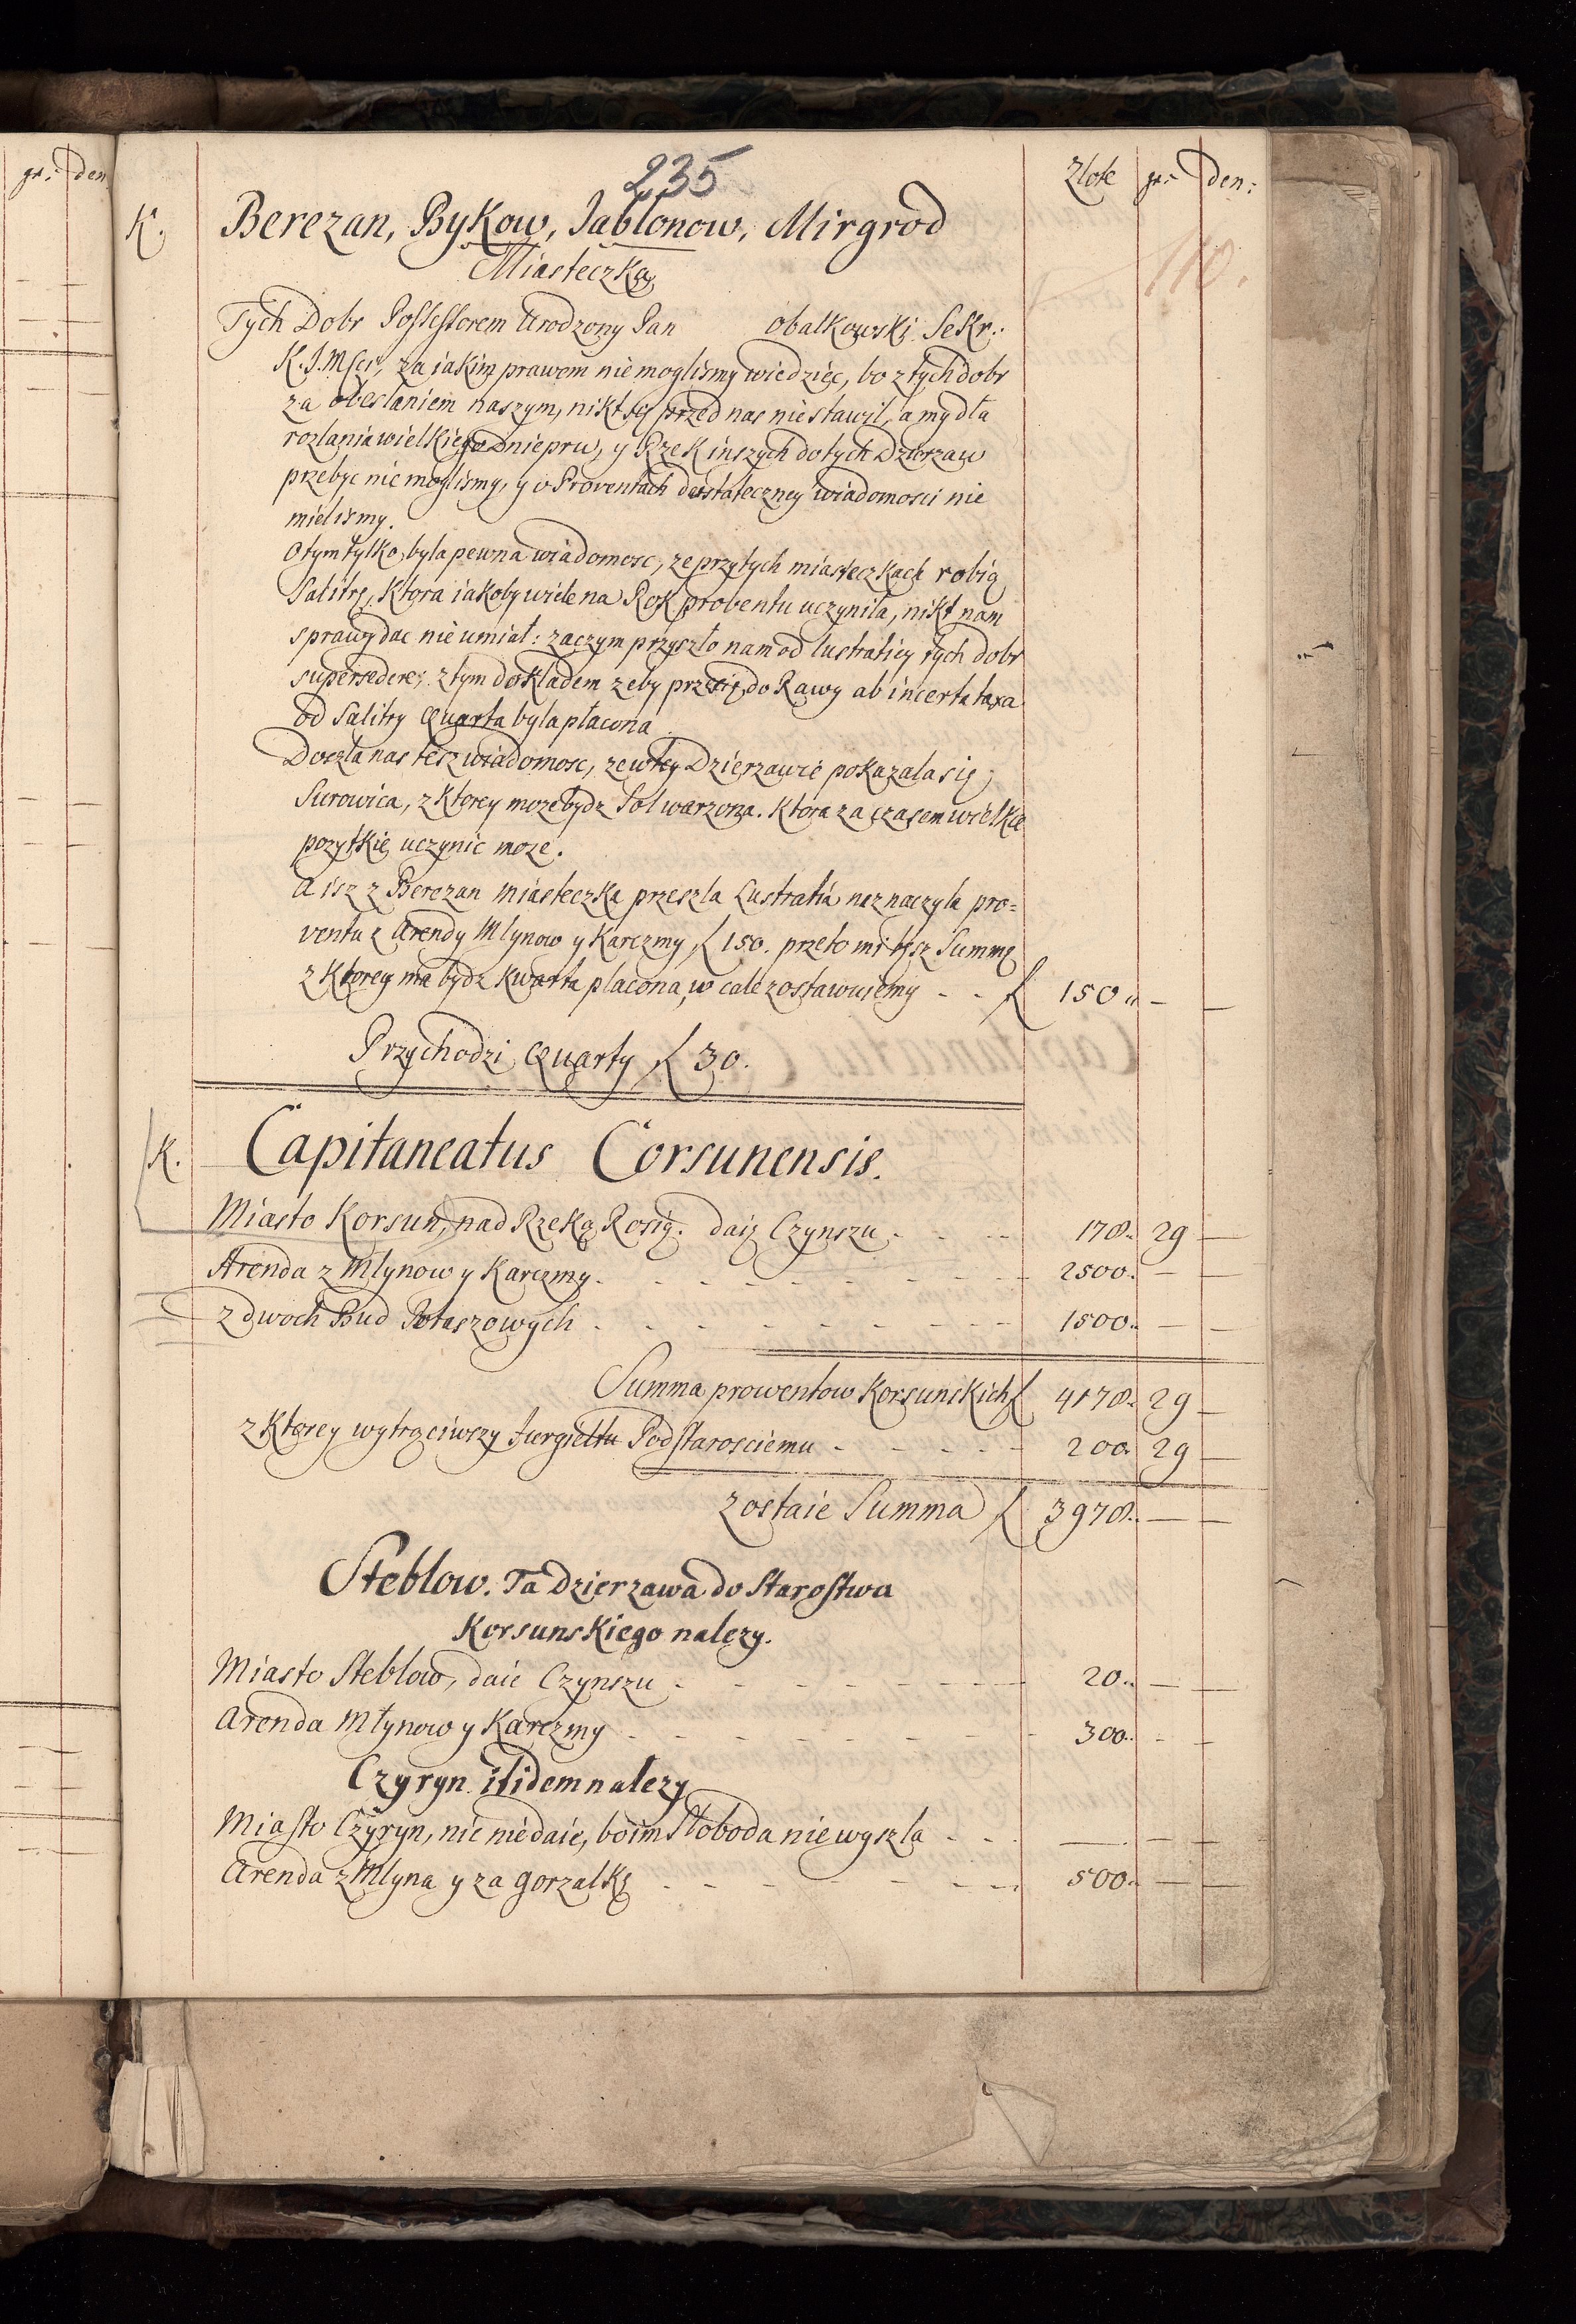 gr: den
235
Zlote gr: den:
110.
K. Berezan, Bykow, Jablonow, Mirgrod
Miasteczka
Tych Dobr Possessorem Urodzony Pan obalkowski Sekr:
K. J. Msci, za iakim prawem nie moglismy wiedziec, bo z tych dobr
za obeslaniem naszym, nikt się przed nas nie stawil, a my dla
rozlania wielkiego Dniepru, y Rzek inszych do tych Dzierzaw
przebyc nie moglismy, y o Proventach dostateczney wiadomosci nie
mielismy.
O tym tylko byla pewna wiadomosc, ze przy tych miasteczkach robią
Salitrę, ktora iakoby wiele na Rok proventu uczynila, nikt nam
sprawy dac nie umiał: zaczym przyszło nam od lustratiey tych dobr
supersedere; z tym dokladem zeby przecię do Rawy ab incerta taxa
od Salitry Quarta byla płacona
Doszła nas tesz wiadomosc, ze w tey Dzierzawie pokazala się
Surowica, z ktorey moze bydz Sol warzona. Ktora za czasem wielkie
pozytkie uczynic moze.
A isz z Berezan miasteczka przeszla Lustratia naznaczyla pro=
ventu z Arendy Mlynow y Karczmy ƒ 150. przeto mi tesz Summę
z ktorey ma bydz kwarta placona, w cale zostawuiemy - - ƒ 150 -
Przychodzi Quarty ƒ 30.
K. Capitaneatus Corsunensis.
Miasto Korsun, nad Rzeką Rosią. daią Czynszu - - - 178. 29 —
Arenda z Mlynow y Karczmy - - - 2500. — —
z dwoch Bud Potaszowych - - - 1500. — —
Summa prowentow Korsunskich ƒ 4178. 29 —
z ktorey wytrąciwszy Jurgieltu Podstarosciemu - - - 200. 29 —
zostaie Summa ƒ 3978. — —
Steblow. Ta dzierzawa do Starostwa
Korsunskiego nalezy.
Miasto Steblow, daie Czynszu - - - 20. — —
Arenda Młynow y Karczmy - - - 300. - -
Czyryn itidem nalezy
Miasto Czyryn, nic nie daie, bo im Słoboda nie wyszla - - — — —
Arenda z Mlyna y za gorzalkę - - - 500. — —